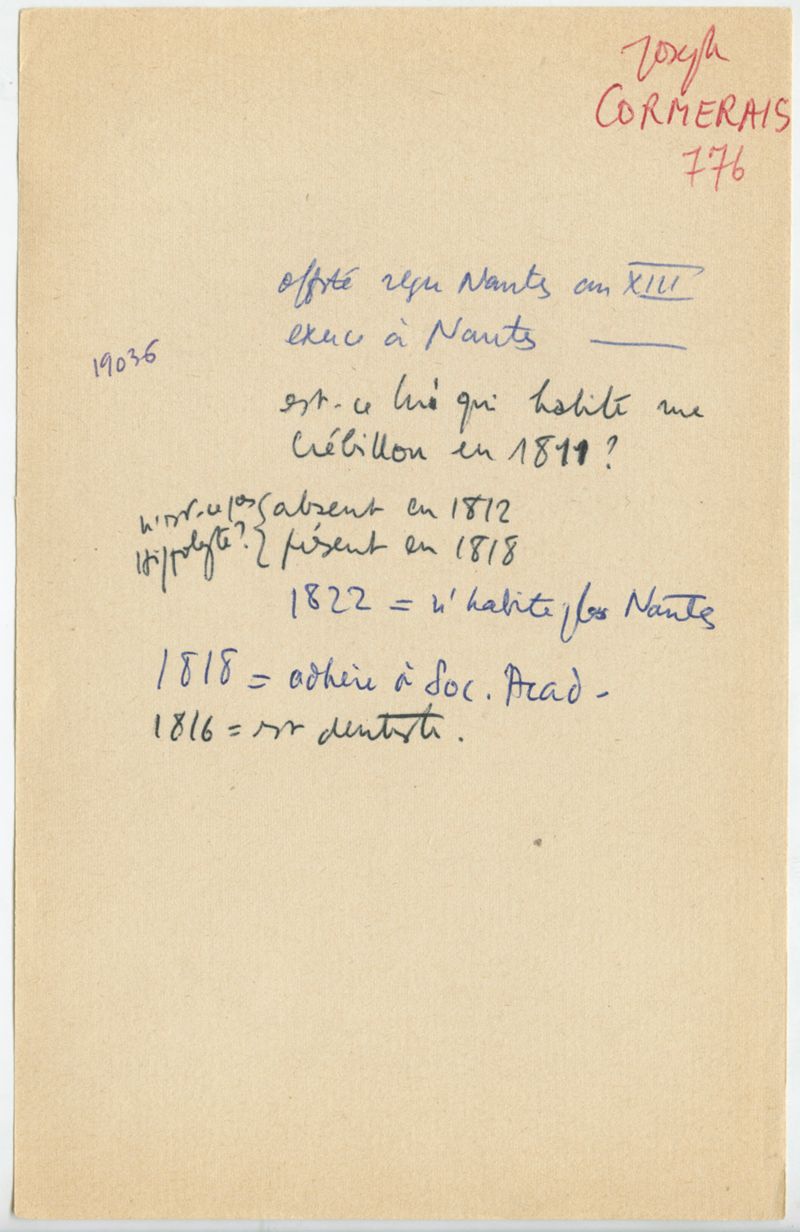 Joseph
CORMERAIS
776
offté reçu Nantes an XIII
exerce à Nantes ——
19036
est-ce lui qui habite rue
Crébillon en 1811 ?
n'est-ce pas { absent en 1812
Hippolyte ? } présent en 1818
1822 = n'habite plus Nantes
1818 = adhère à Soc. Acad -
1816 = est dentiste .